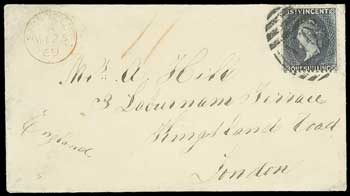 ST VINCENT
ONE SHILLING
Mrs. A. Hill
3 Laburnam Terrace
Kingsland Road
London
England